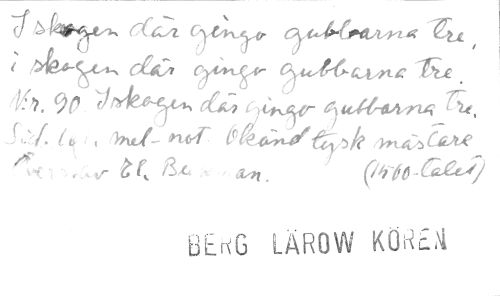 I skogen där gingo gubbarna tre,
i skogen där gingo gubbarna tre.
N:r. 90. I skogen där gingo gubbarna tre.
mel- not. Okänd tysk mästare
El. (1500-talet)
BERG LÄROW KÖREN